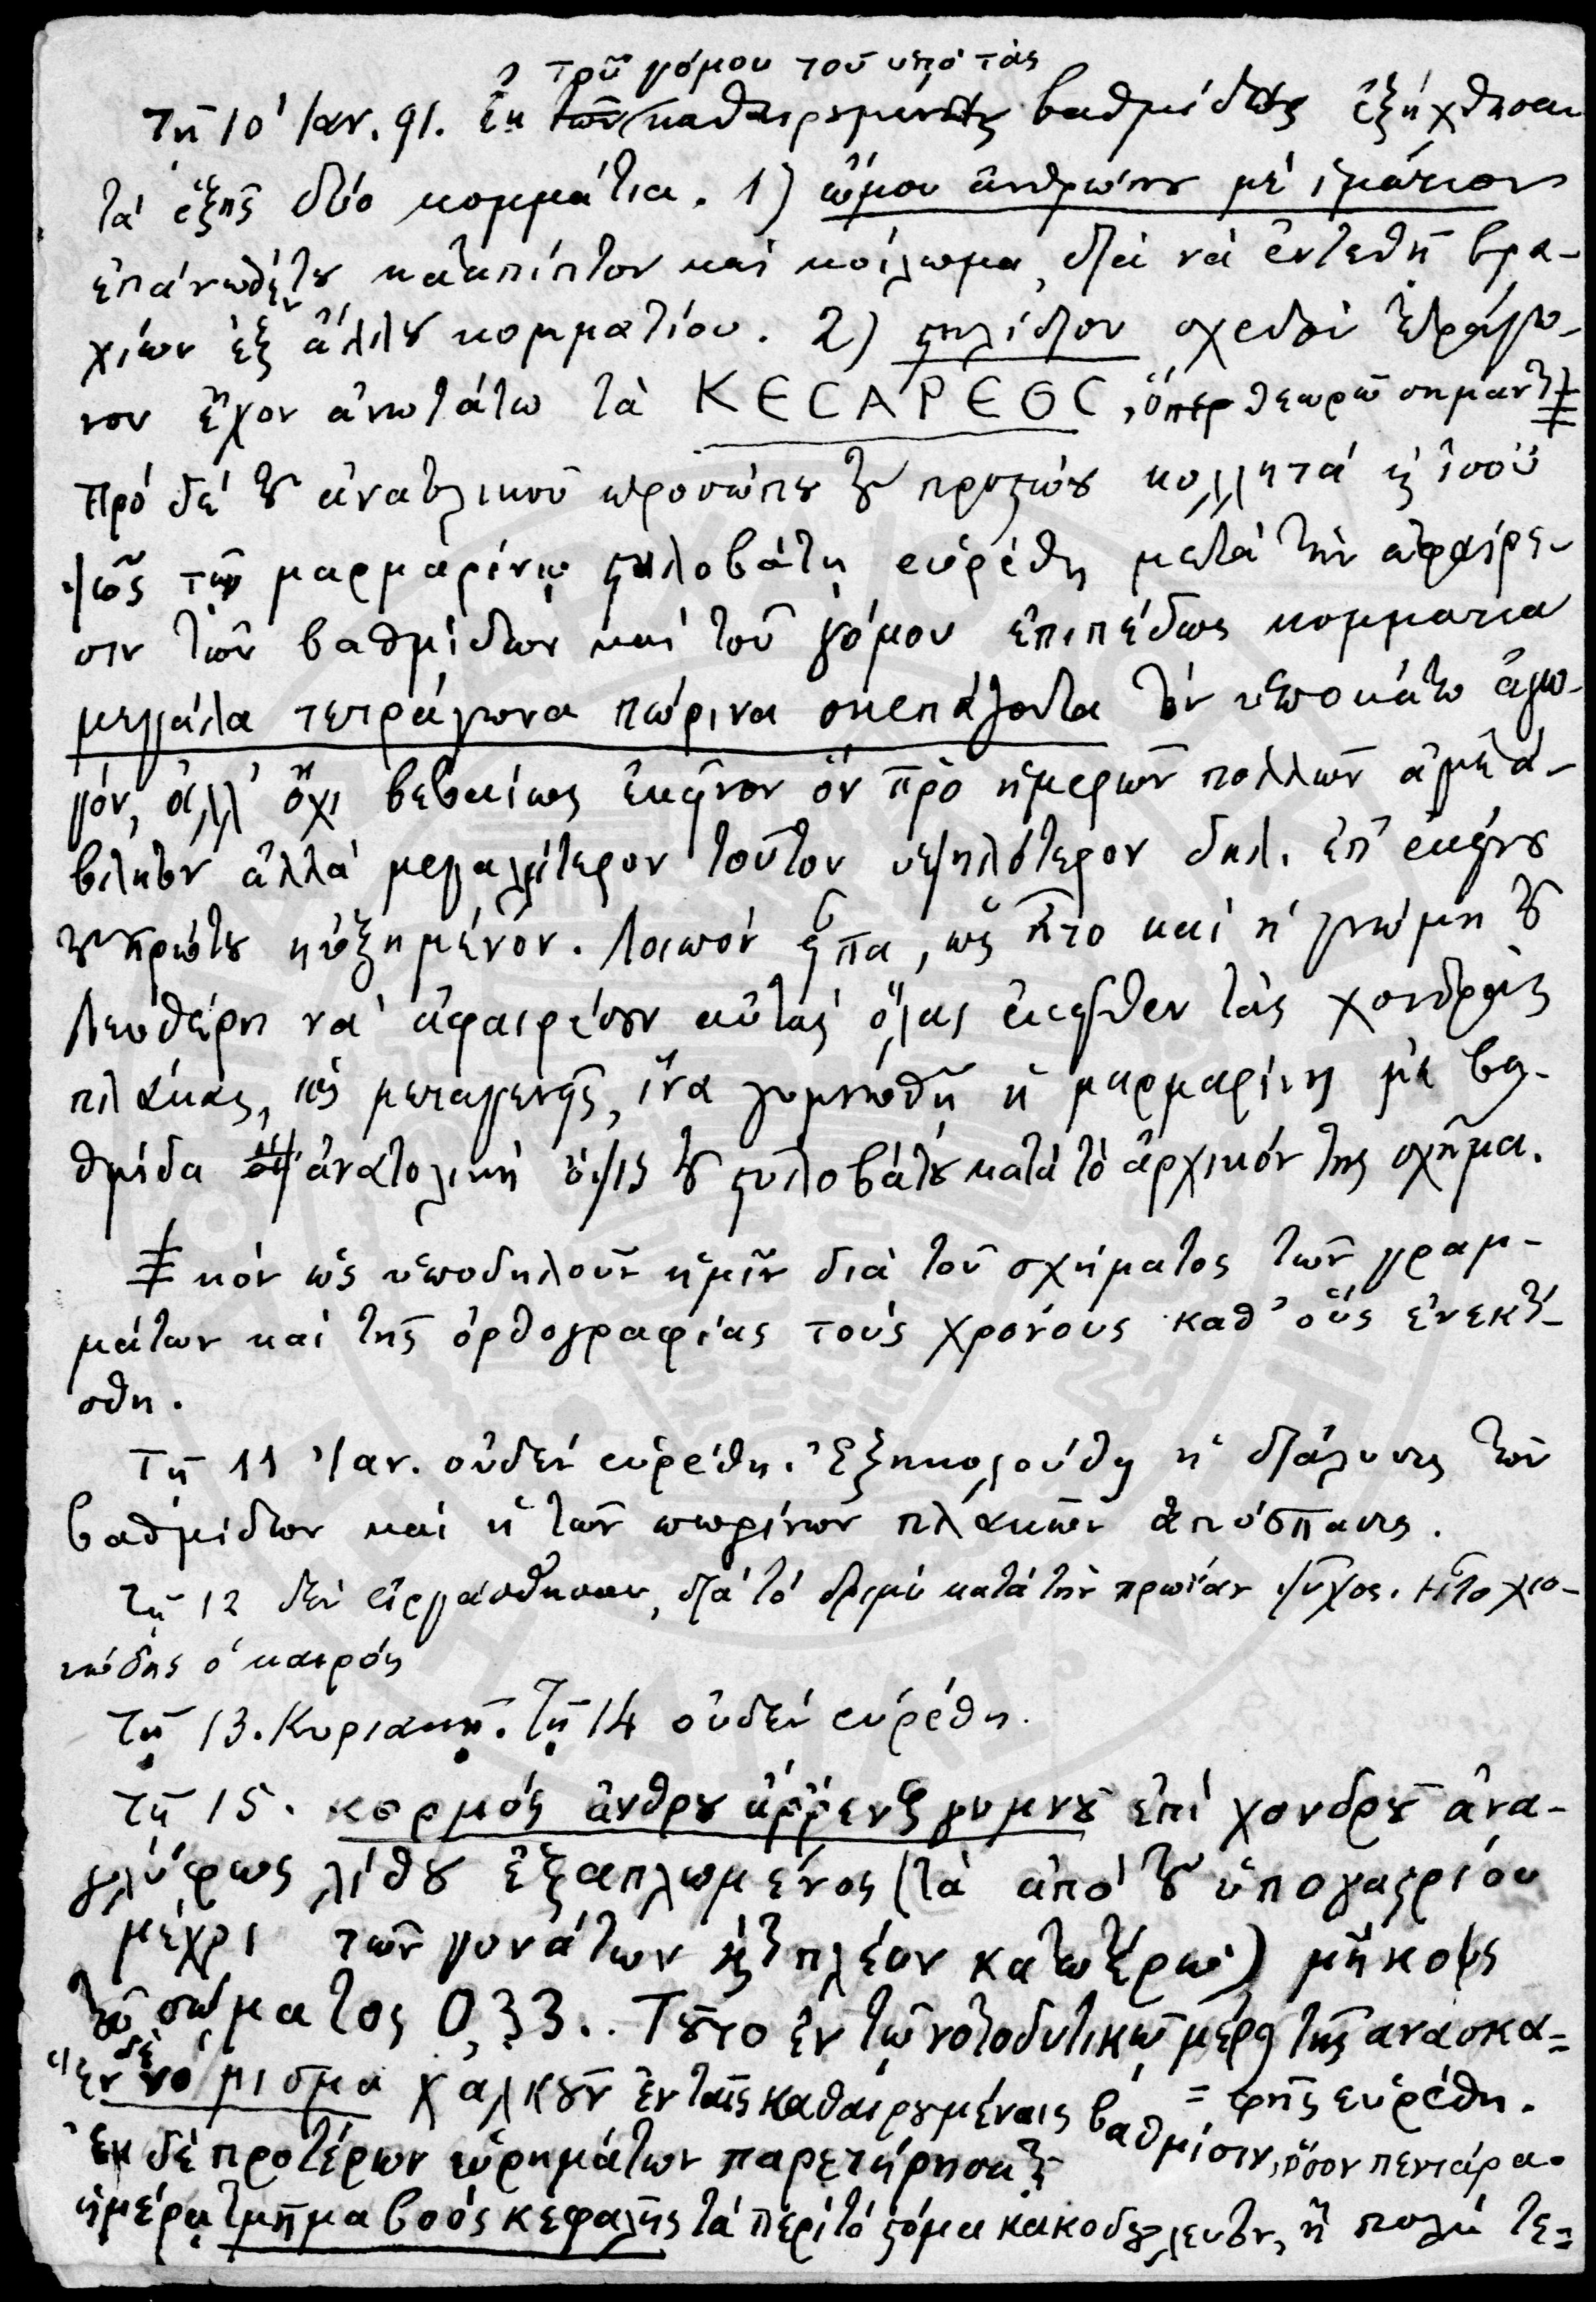 τοῦ γόμου τοῦ ὑπὸ τὰς
Τῇ 10 Ἰαν. 91. Ἐκ τῶν καθαιρεμένας βαθμίδας ἐξήχθησαν
τὰ ἑξῆς δύο κομμάτια. 1) ὤμου ἀνθρώπου μὲ ἱμάτιον
ἐπάνωθεν καταπίπτον καὶ κοίλωμα, διὰ νὰ ἐντεθῇ βρα-
χίων ἐξ ἄλλου κομματίου. 2) στηλίδιον σχεδὸν τετράγω-
νον ἔχον ἀνωτάτω τὰ ΚΕCΑΡΕΟC, ὅπερ θεωρῶ σημαντι
Πρὸ δὲ τοῦ ἀνατολικοῦ προσώπου τοῦ κολλητὰ ἐξ ἴσου
ὕψους τῷ μαρμαρίνῳ στυλοβάτῃ εὑρέθη μετὰ τὴν ἀφαίρε-
σιν τῶν βαθμίδων καὶ τοῦ γόμου ἐπιπέδως κομμάτια
μεγάλα τετράγωνα πώρινα σκεπάζοντα τὸν ὑποκάτω ἀγω-
γόν, ἀλλ' ὄχι βεβαίως ἐκεῖνον ὃν πρὸ ἡμερῶν πολλῶν
ἀλλὰ μεγαλείτερον τοῦτον ὑψηλότερον δηλ. ἐπ' ἐκείνου
τοῦ πρώτου ηὐξημένον. Λοιπὸν εἶπα, ὡς ἦτο καὶ ἡ γνώμη τοῦ
Λευθέρη νὰ ἀφαιρέσουν αὐτὰς ὅλας ἐκεῖθεν τὰς χονδρὰς
πλάκας, ὡς μεταγενεῖς, ἵνα γυμνωθῇ ἡ μαρμαρίνη μὲ βα-
θμίδα ἀνατολικὴ ὄψις τοῦ στυλοβάτου κατὰ τὸ ἀρχικόν της σχῆμα.
κὸν ὡς ὑποδηλοῦν ἡμῖν διὰ τοῦ σχήματος τῶν γραμ-
μάτων καὶ τῆς ὀρθογραφίας τοὺς χρόνους καθ' οὓς ἐνεκτί-
σθη.
Τῇ 11 Ἰαν. οὐδὲν εὑρέθη. Ἐξηκολούθη ἡ διάλυσις τῶν
βαθμίδων καὶ ἡ τῶν πωρίνων πλακῶν ἀπόσπασις.
Τῇ 12 δὲν εἰργάσθησαν, διὰ τὸ δριμὺ κατὰ τὴν πρωΐαν ψῦχος. Ἦτο χιο-
νώδης ὁ καιρός
Τῇ 13. Κυριακῇ. Τῇ 14 οὐδὲν εὑρέθη.
Τῇ 15. κορμὸς ἀνθρου ἄῤῥενος γυμνοῦ ἐπὶ χονδροῦ ἀνα-
γλύφως λίθου ἐξαπλωμένος (τὰ ἀπὸ τοῦ ὑπογαστρίου
μέχρι τῶν γονάτων καὶ πλέον κατωτέρω) μῆκος
τοῦ σώματος 0,33.. Τοῦτο ἐν τῷ νοτοδυτικῷ μέρει τῆς ἀνασκα=
=φῆς εὑρέθη.
Ἓν δὲ νόμισμα χαλκοῦν ἐν ταῖς καθαιρουμέναις βαθμίσιν, ὅσον πεντάρα.
Ἐκ δὲ προτέρων εὑρημάτων παρετήρησα
ἡμέρᾳ τμῆμα βοὸς κεφαλῆς τὰ περὶ τὸ στόμα κακοδουλευτον, ἢ πολὺ τε=